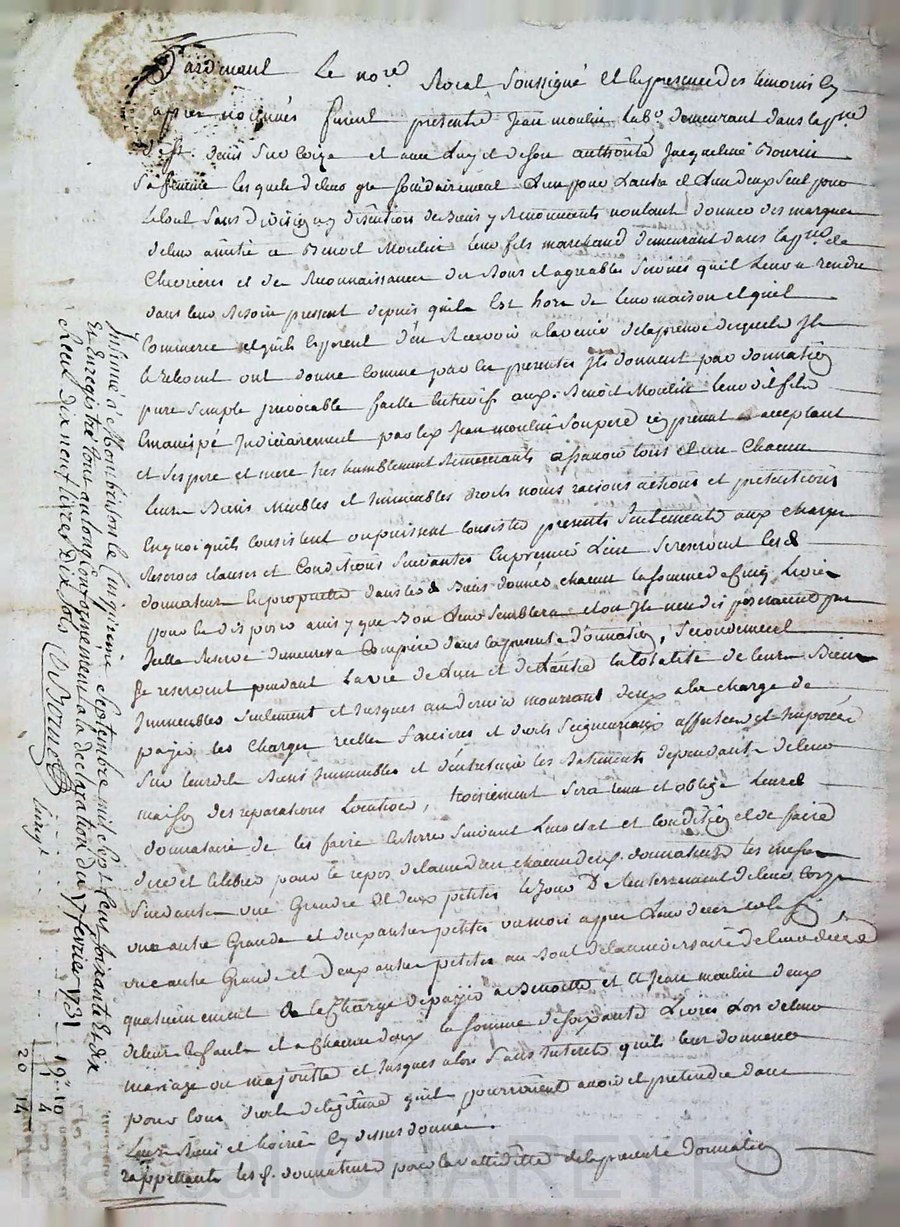 Pardevant Le nore Royal Soussigné Et en presence des temoins Cy
apprès nommés furent presents Jean moulin labo. demeurant dans la psse
de st denis sur Coize et avec Luy et de son authorité Jacqueline Bourin
Sa femme lesquels de leur gré Solidairement L'un pour L'autre et L'un deux Seul pour
Le tout Sans division ny discution de Biens y Renonceants voulant donner des marques
de leur amitié a Benoit Moulin leur fils marchand demeurant dans la psse de
Chevrieres et de Reconnaissance des Bons et agreables Services quil Leur a rendu
dans leur Besoin present depuis quil Est hors de leur maison et quil
Commerce et quils Esperent d'en Recevoir a l'avenir de la preuve desquels Ils
le relevent ont donné comme par Ces presentes Ils donnent par donnation
pure Simple Irrevocable faitte Entrevifs aux. Benoit Moulin leurdit fils
Emancipé Judiciairement par led. Jean moulin Son pere icy present acceptant
et Ses pere et mere tres humblement Remerciants a Savoir tous et un Chacun
leurs Biens Meubles et Immeubles droits noms raisons actions et pretentions
En quoi quils Consistent ou puissent Consister presents Seulement aux charges
Reserves clauses et Conditions Suivantes En premier Lieu Se reservent lesd.
donnateurs En proprieté dans lesd. Biens donnés chacun la somme de Cinq Livres
pour En disposer ainsy que Bon Leur Semblera et ou Ils n'en disposeraient pas
Icelle Reserve demeurera Comprise dans la presente donnation, Secondement
Se reservent pendant La vie de L'un et de L'autre la totalité de leurs Biens
Immeubles Seulement et Jusques au dernier mourrant d'eux a la charge de
payer les Charges reelles foncieres et droits Seigneuriaux affectées et Imposées
Sur leursdits Biens Immeubles et d'entretenir les Batiments dependants de leur
maison des reparations Locatives, troisiement Sera tenu et obligé Leurd.
donnataire de les faire Enterrer Suivant Leur etat et condition et de faire
dire et Celebrer pour le repos de l'ame d'un chacun deux. donnateurs les messes
Suivantes une Grande Et deux petites le Jour De L'enterrement de leur Corps
une autre Grande et deux autres petites un mois apprès Leur deces et enfin
une autre Grande et Deux autres petites au Bout de l'anniversaire de leur deces
quatriemement a la Charge de payer a Benoitte et a Jean moulin deux
de leurs Enfants et a Chacun deux la somme de Soixante Livres Lors de leur
mariage ou majorité et Jusques alors Sans Interets quils leur donnent
pour tous droits de legitime quils pourroient avoir et pretendre dans
Leurs Biens et hoirie Cy dessus donnés.
rappellants les d. donnateurs pour la validitté de la presente donnation
Insinué a Montbrison le Cinquieme Septembre mil Sept Cent soixante et dix
Et Enregistré tout au long Conformement a la declaration du 17 fevrier 1731
Recu dix neuf livres Dix Sols
19. 10
1 4
20 14
CHAREYRON